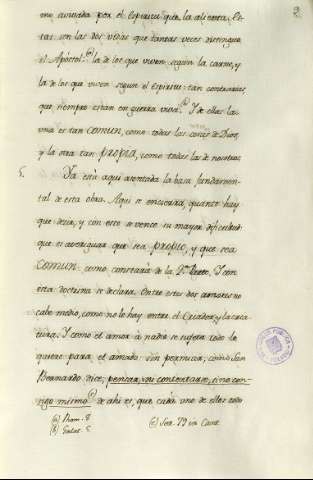 mo animada por el Espiritu que la alienta. Es-
tas son las dos vidas que tantas veces distingue
el Apóstol: (a) la de los que viven segun la carne, y
la de los que viven segun el Espiritu: tan contrarias,
que siempre estan en guerra viva. (b) Y de ellas la
una es tan comun, como todas las cosas de Dios,
y la otra tan propria, como todas las de nosotros.
5. Ya está aqui asentada la basa fundamen-
tal de esta obra. Aqui se encierra, quanto hay
que decir, y con esto se vence su mayor dificultad
que es averiguar que sea propio, y que sea
comun: como constará de la 2.ª Parte. Y con
esta doctrina se declara. Entre estos dos amores no
cabe medio, como no lo hay entre el Criador, y la cria-
tura. Y como el amor á nadie se sujeta todo lo
quiere para el amado: sin permitir, como San
Bernardo dice, pensar, ni contentarse, sino con-
sigo mismo (c) de ahi es, que cada uno de ellos todo
(a) Rom. 8
(b) Galat. 5
(c) Ser. 79 in Cant
2